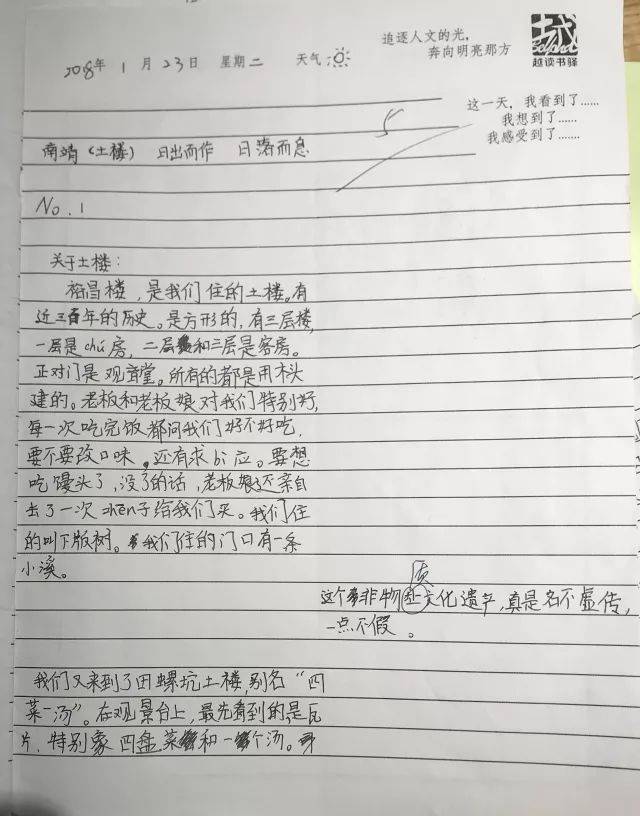 追逐人文的光，
奔向明亮那方
越读书驿
2018年 1月 23日 星期二 天气
这一天，我看到了……
我想到了……
我感受到了……
南靖（土楼） 日出而作 日落而息
No.1
关于土楼：
裕昌楼，是我们住的土楼。有
近三百年的历史。是方形的，有三层楼，
一层是chú房，二层和三层是客房。
正对门是观音堂。所有的都是用木头
建的。老板和老板娘对我们特别好，
每一次吃完饭都问我们好不好吃，
要不要改口味。还有求bì应。要想
吃馒头了，没了的话，老板娘还亲自
去了一次zhèn子给我们买。我们住
的叫下版树。我们住的门口有一条
小溪。
质
这个非物文化遗产，真是名不虚传，
一点不假。
我们又来到了田螺坑土楼，别名“四
菜一汤”。在观景台上，最先看到的是瓦
片，特别象四盘菜和一个汤。